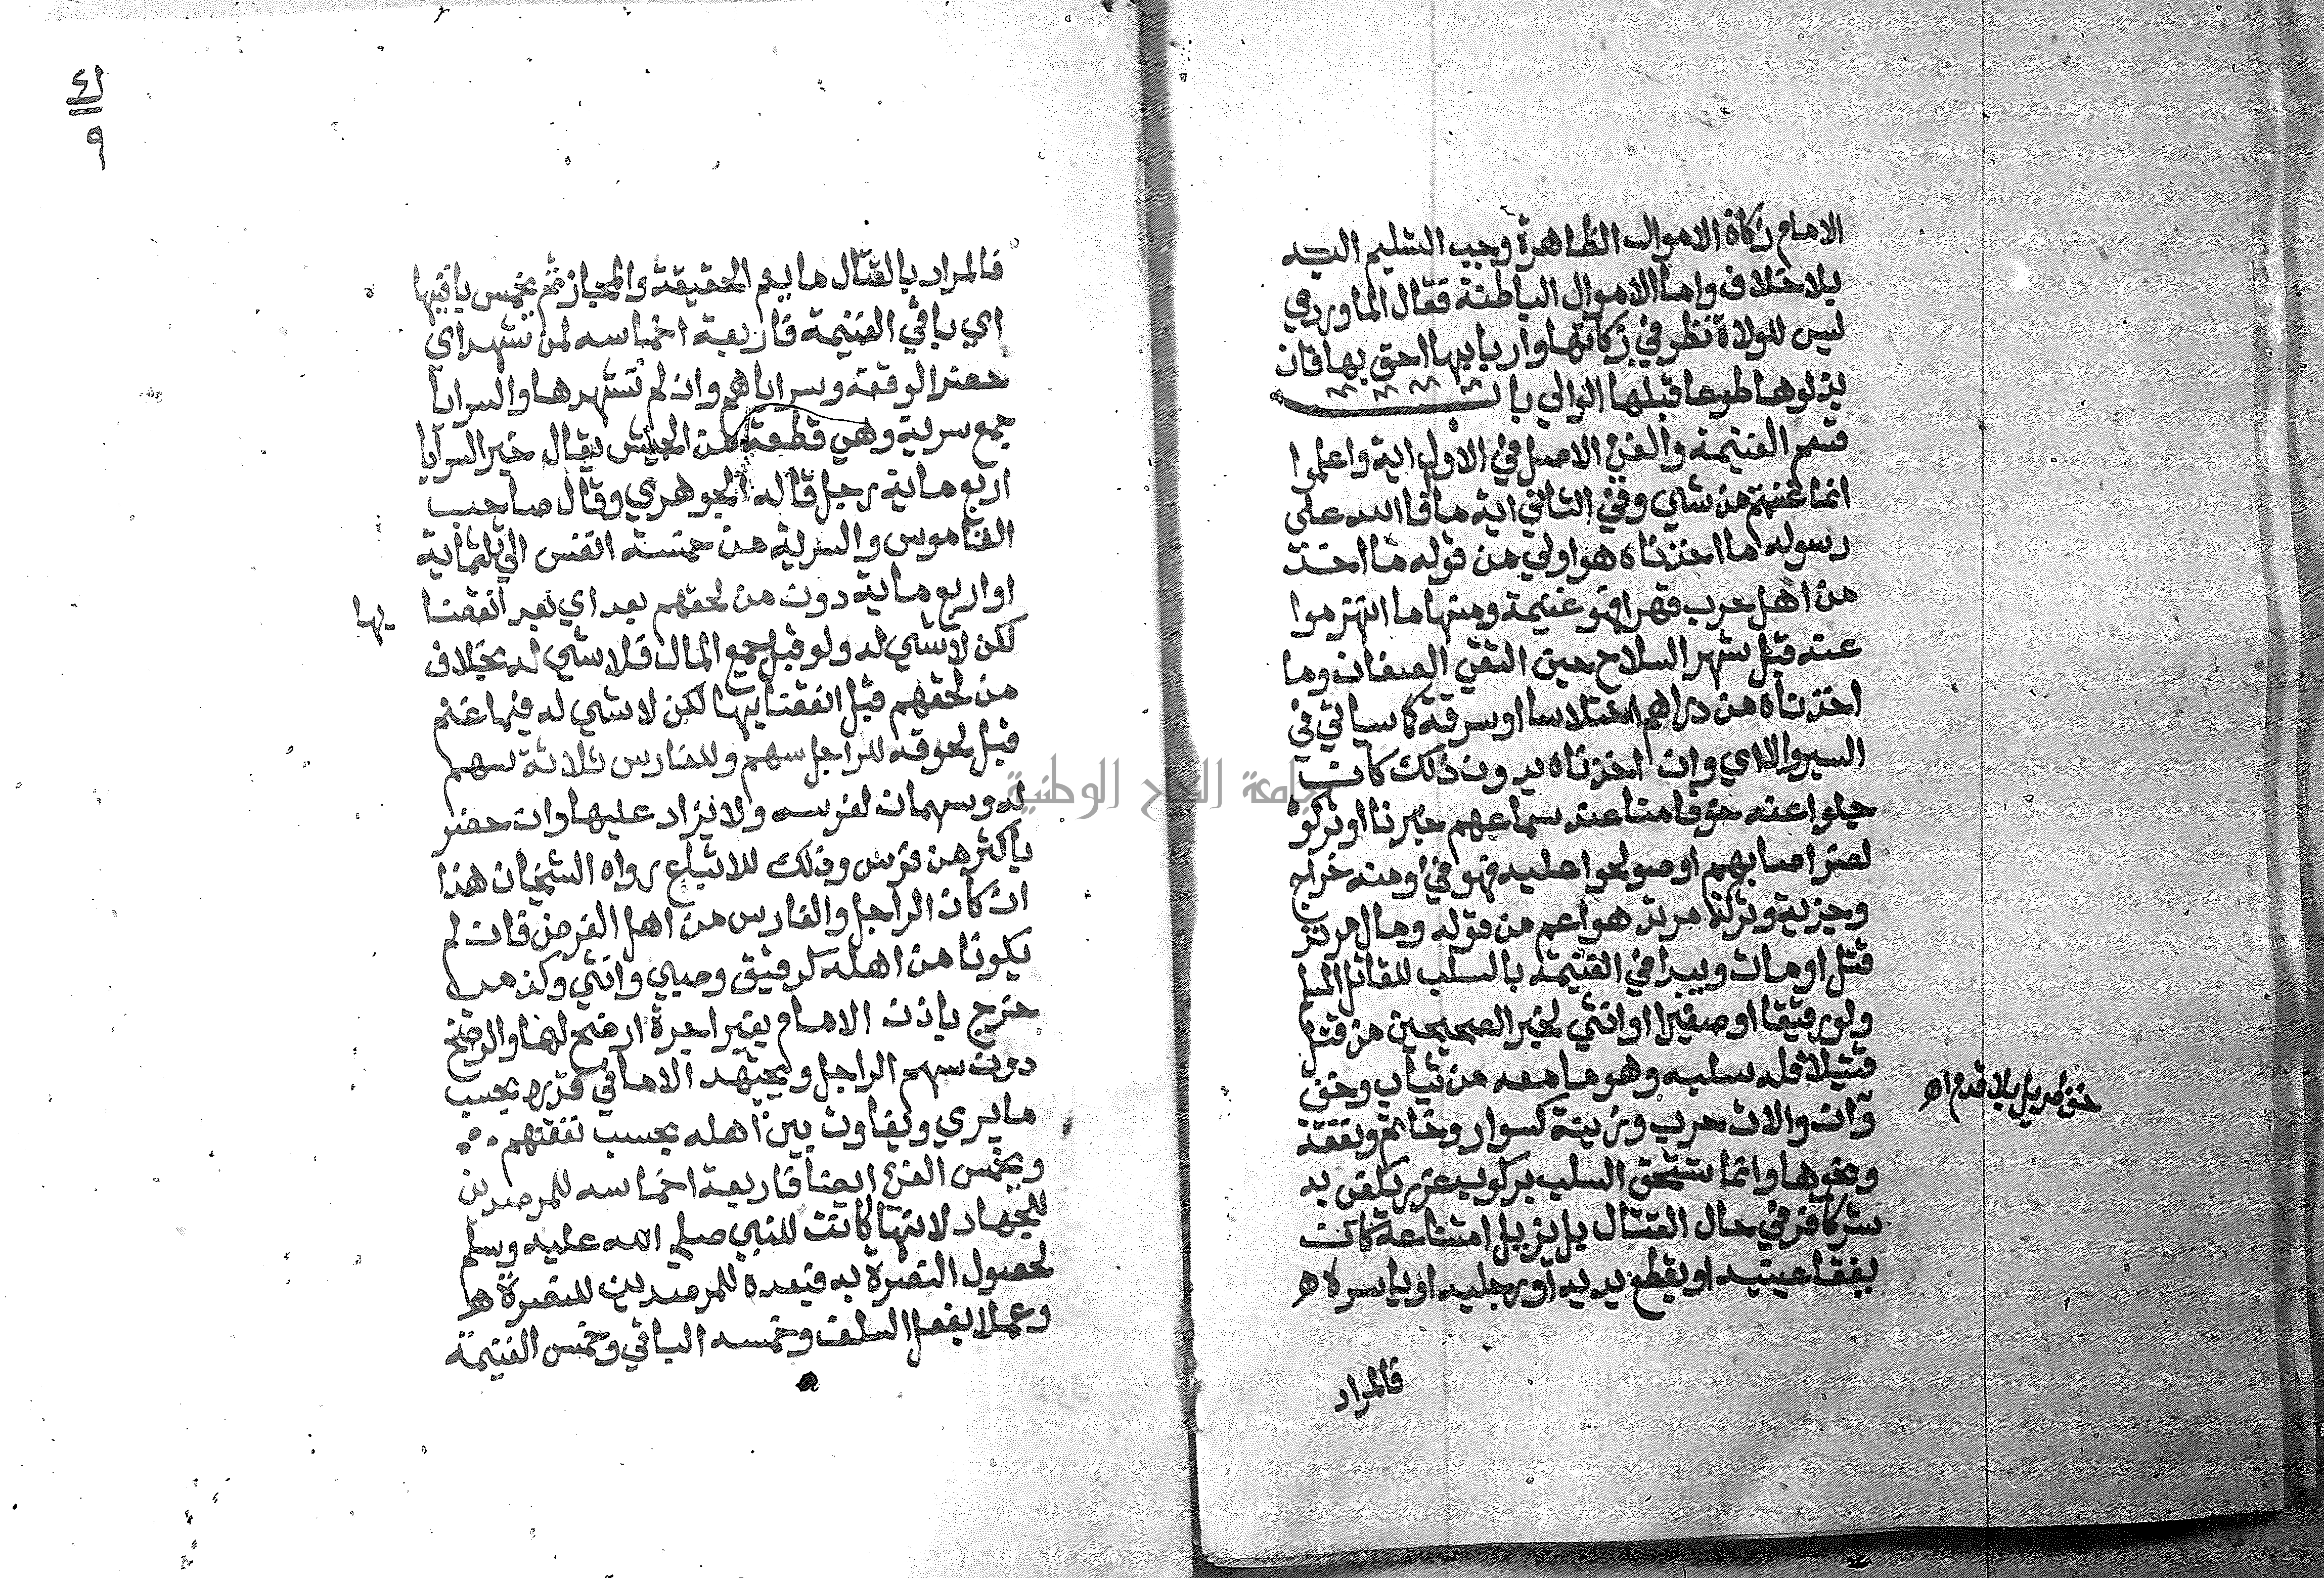 الامام زكاة الاموال الظاهرة وجب التسليم اليه
بلا خلاف واما الاموال الباطنة فقال الماوردي
ليس للولاة نظر في زكاتها واربابها احق بها فان
بذلوها طوعا قبلها الوالي باب
قسم الغنيمة والفئ الاصل في الاول اية واعلموا
انما غنمتم من شي وفي الثاني اية ما افا الله على
رسوله ما اخذناه هو اولي من قوله ما اخذ
من اهل حرب قهرا فهو غنيمة ومنها ما انهزموا
عنه قبل شهر السلاح حين التقي الصفان وما
اخذناه من دراهم اختلاسا او سرقة كما سياتي في
السير والااي وان اخذناه بدون ذلك كان
جلوا عنه خوفا منا عند سماعهم خبرنا او تركوه
لضر اصابهم او صولحوا عليه فهو فئ ومنه خراج
وجزية وتركة مرتد هو اعم من قوله ومال مرتد
قتل او مات ويبدا في الغنيمة بالسلب للقاتل المسلم
ولو رقيقا او صغيرا او انثي لخبر الصحيحين من قتل
قتيلا فله سلبه وهو ما معه من ثياب وخف
وران والات حرب وزينة كسوار وخاتم ونفقة
ونحوها وانما يستحق السلب بركوب غرر يكفي به
شر كافر في حال القتال بل يزيل امتناعه كان
يفقا عينيه او يقطع يديه او رجليه او ياسره ه
خف طويل بلا قدم اه
فالمراد
٤١
٩
فالمراد بالقتال ما يعم الحقيقة والمجاز ثم يخمس باقيها
اي باقي الغنيمة فاربعة اخماسه لمن شهد اي
حضر الوقعة وسراياهم وان لم تشهدها والسرايا
جمع سرية وهي قطعة من الجيش يقال خير السرايا
اربع ماية رجل قاله الجوهري وقال صاحب
القاموس والسرية من خمسة انفس الي ثلثماية
او اربع ماية دون من لحقهم بعد اي بعد انقضا
يها
لكن لا شي له ولو قبل جمع المال فلا شي له بخلاف
من لحقهم قبل انقضايها لكن لا شي له فيما غنم
قبل لحوقه للراجل سهم وللفارس ثلاثة سهم
له وسهمان لفرسه ولا يزاد عليها وان حضر
باكثر من فرس وذلك للاتباع رواه الشيخان هذا
ان كان الراجل والفارس من اهل الفرض فان لم
يكونا من اهله كرقيق وصبي وانثي وكذمي
خرج باذن الامام بغير اجرة ارضخ لهما والرضخ
دون سهم الراجل ويجتهد الامام في قدره بحسب
ما يري ويفاوت بين اهله بحسب نفعهم
ويخمس الفئ ايضا فاربعة اخماسه للمرصدين
للجهاد لانها كانت للنبي صلي الله عليه وسلم
لحصول النصرة به فبعده للمرصدين للنصرة ها
وعملا بفعل السلف وخمسه الباقي وخمس الغنيمة
جامعة النجاح الوطنية